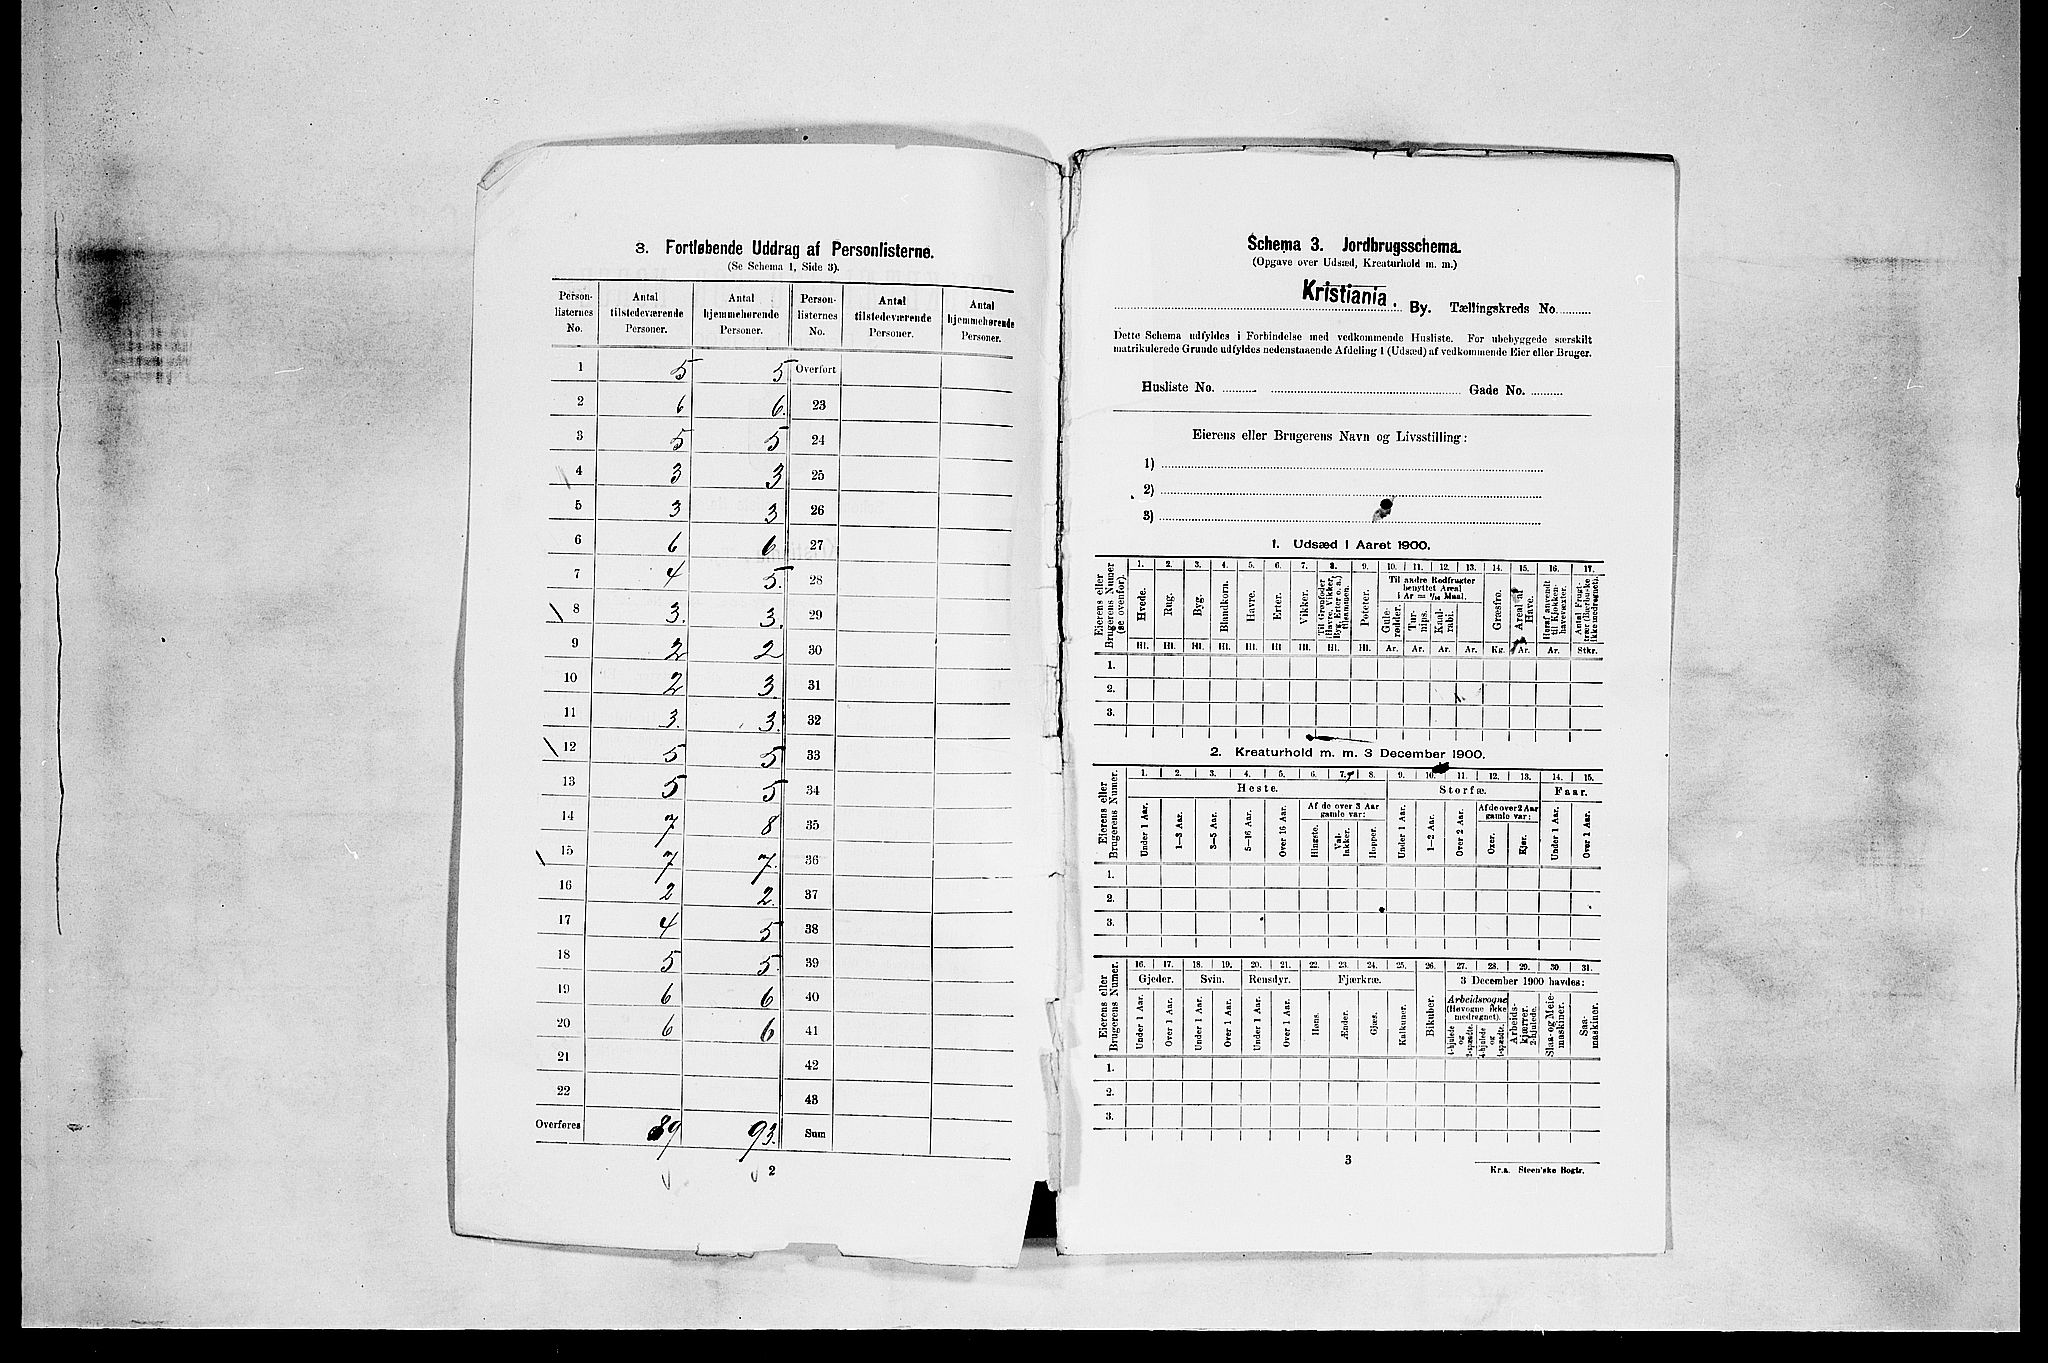 3. Fortløbende Uddrag af Personlisterne.
(Se Schema 1, Side 3).
Person-listernes No. | Antal tilstedeværende Personer. | Antal hjemmehørende Personer. | Person-listernes No. | Antal tilstedeværende Personer. | Antal hjemmehørende Personer.
1 5 5 Overført
2 6 6. 23
3 5 5 24
4 3 3 25
5 3 3 26
6 6 6 27
7 4 5. 28
8 3. 3. 29
9 2 2 30
10 2 3 31
11 3. 3. 32
12 5 5 33
13 5 5 34
14 7 8 35
15 7 7. 36
16 2 2. 37
17 4 5 38
18 5 5. 39
19 6 6 40
20 6 6 41
21 42
22 43
Overføres 89 93. Sum
2
Schema 3. Jordbrugsschema.
(Opgave over Udsæd, Kreaturhold m. m.)
Kristiania. By. Tællingskreds No.
Dette Schema udfyldes i Forbindelse med vedkommende Husliste. For ubebyggede særskilt
matrikulerede Grunde udfyldes nedenstaaende Afdeling 1 (Udsæd) af vedkommende Eier eller Bruger.
Husliste No. Gade No.
Eierens eller Brugerens Navn og Livsstilling:
1)
2)
3)
1. Udsæd i Aaret 1900.
Eierens eller Brugerens Numer (se ovenfor).
1. 2. 3. 4. 5. 6. 7. 8. 9. 10. 11. 12. 13. 14. 15. 16. 17.
Hvede. Rug. Byg. Blandkorn. Havre. Erter. Vikker. Til Grønfoder (Havre, Vikker, Byg, Erter o. a.) tilsammen. Poteter.
Til andre Rodfrugter benyttet Areal i Ar = 1/10 Maal.
Gulerødder. Turnips. Kaalrabi. Græsfrø. Areal af Have. Heraf anvendt til Kjøkkenhavevæxter. Antal Frugttrær (Bærbuske ikke medregnet).
Hl. Hl. Hl. Hl. Hl. Hl. Hl. Hl. Hl. Ar. Ar. Ar. Ar. Kg. Ar. Ar. Stkr.
1.
2.
3.
2. Kreaturhold m. m. 3 December 1900.
Eierens eller Brugerens Numer.
1. 2. 3. 4. 5. 6. 7. 8. 9. 10. 11. 12. 13. 14. 15.
Heste. Storfæ. Faar.
Af de over 3 Aar gamle var: Af de over 2 Aar gamle var:
Under 1 Aar. 1—3 Aar. 3—5 Aar. 5—16 Aar. Over 16 Aar. Hingste. Vallakker. Hopper. Under 1 Aar. 1—2 Aar. Over 2 Aar. Oxer. Kjør. Under 1 Aar. Over 1 Aar.
1.
2.
3.
Eierens eller Brugerens Numer.
16. 17. 18. 19. 20. 21. 22. 23. 24. 25. 26. 27. 28. 29. 30. 31.
Gjeder. Svin. Rensdyr. Fjærkræ. 3 December 1900 havdes:
Arbeidsvogne (Høvogne ikke medregnet).
Under 1 Aar. Over 1 Aar. Under 1 Aar. Over 1 Aar. Under 1 Aar. Over 1 Aar. Høns. Ænder. Gjæs. Kalkuner. Bikuber. 4-hjulede og 2-spændte. 4-hjulede og 1-spændte. Arbeidskjærrer, 2-hjulede. Slaa- og Meiemaskiner. Saamaskiner.
1.
2.
3.
3
Kr.a. Steen'ske Bogtr.